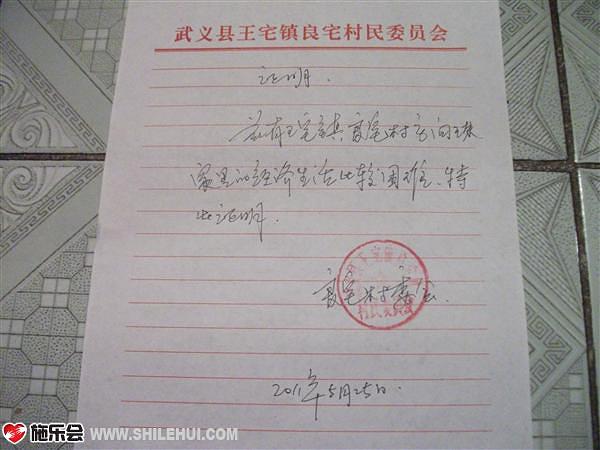 武义县王宅镇良宅村民委员会
证明.
兹有王宅镇良宅村
家里的经济生活比较困难、特
此证明.
良宅村委会.
村民委员会
2011年5月25日.
施乐会 WWW.SHILEHUI.COM